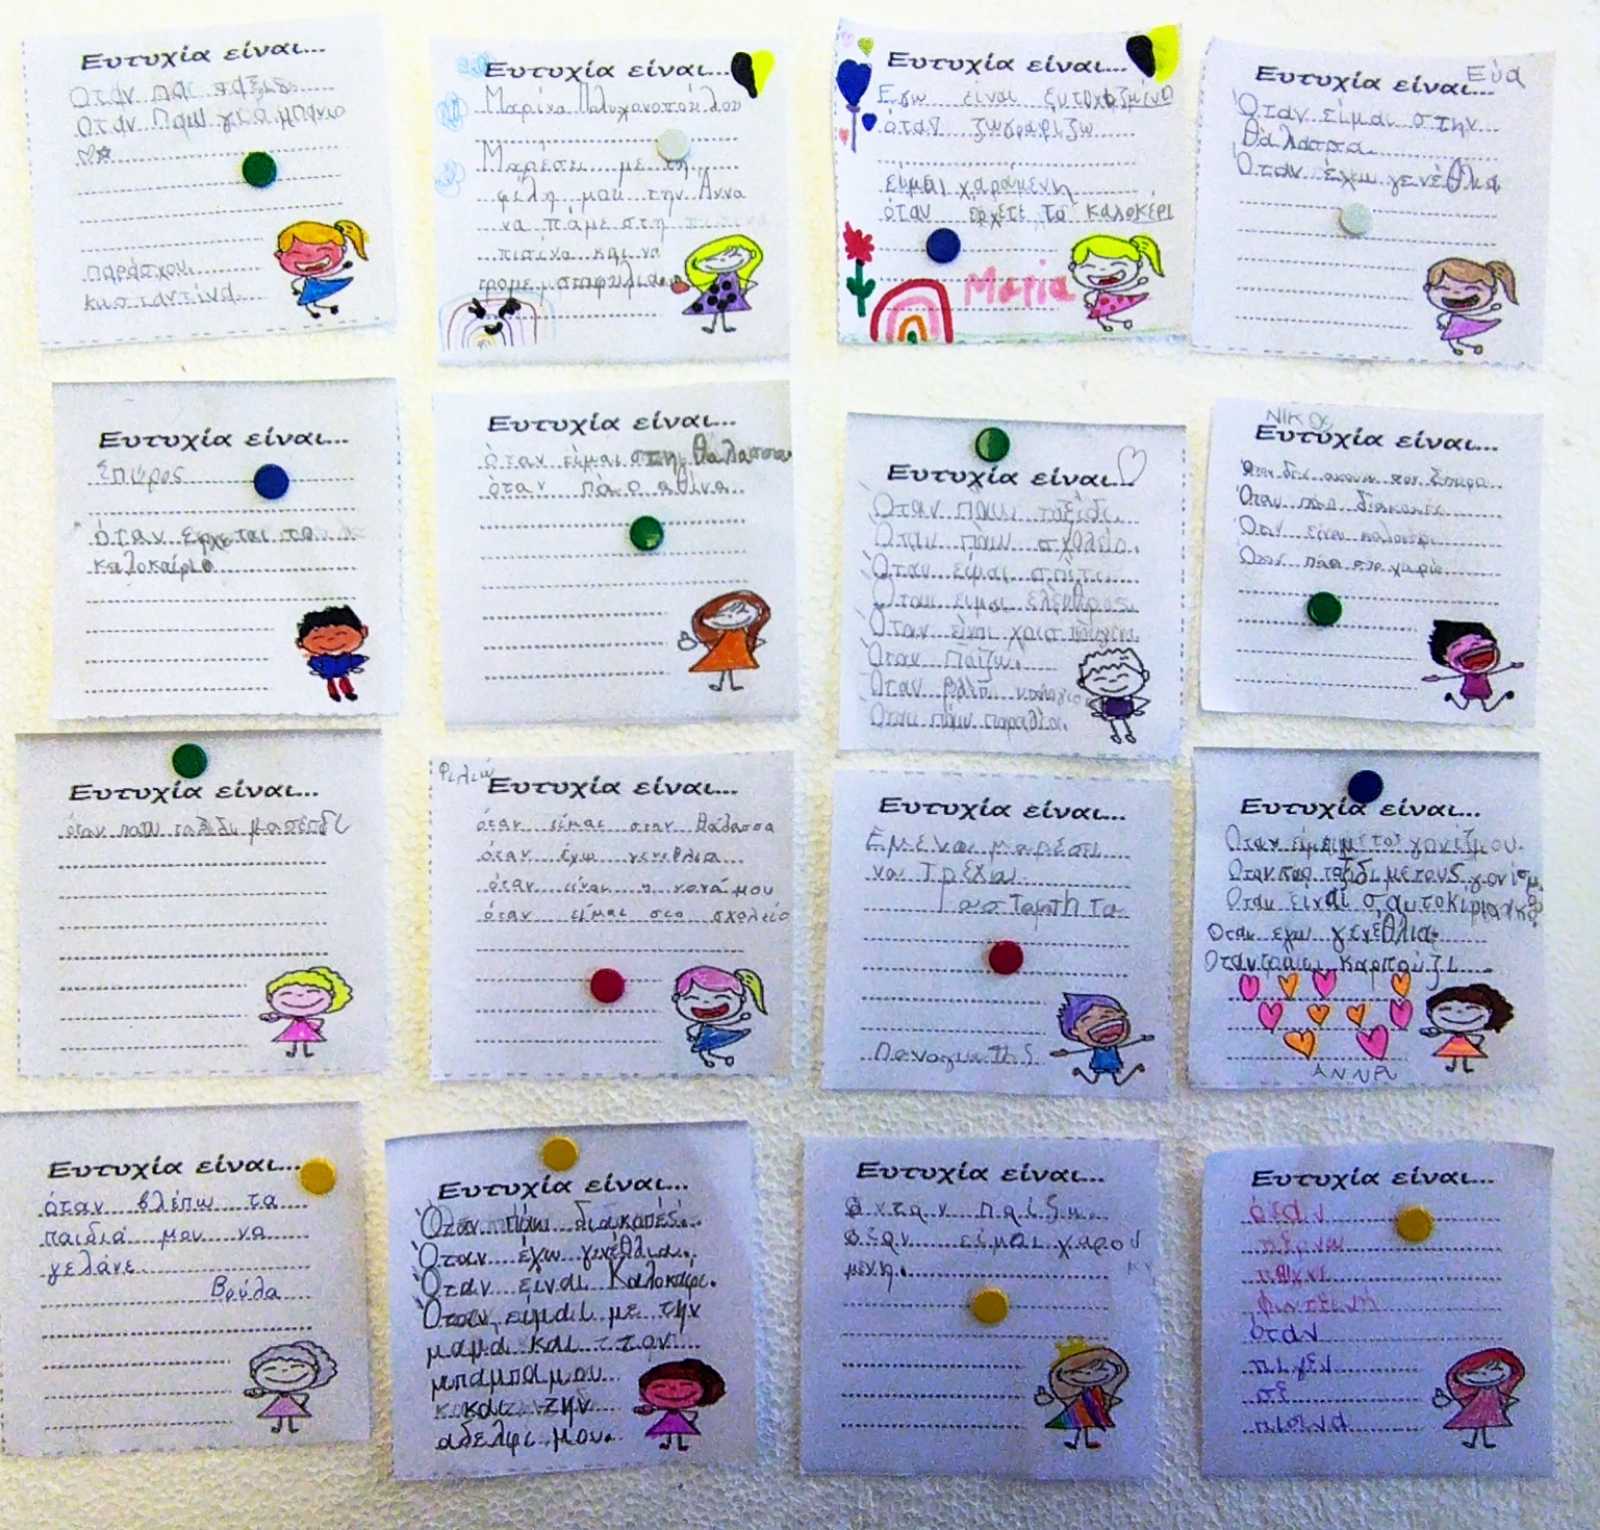 Ευτυχία είναι...
Όταν πάω ταξίδι
Όταν Πάω για μπάνιο
παράσχου
κωσταντίνα
Ευτυχία είναι...
Μαρίνα
Μαρέσει με τη
φίλη μου την Άννα
να πάμε στη
πισίνα και να
τρομε σταφύλια
Ευτυχία είναι...
Εγω είναι
όταν ζωγραφίζω
είμαι χαραμενη
όταν ερχετε το καλοκέρι
Μαρία
Εύα
Ευτυχία είναι...
Όταν είμαι στην
θάλασσα.
Όταν έχω γενέθλια
Ευτυχία είναι...
Σπύρος
όταν έρχεται το
καλοκαίριο
Ευτυχία είναι...
όταν είμαι στη θάλασσα
όταν πάω αθίνα
Ευτυχία είναι...
Όταν πάω ταξίδι.
Όταν πάων σχολείο.
Όταν είμαι σπίτι
Όταν είμαι
Όταν είναι
Όταν Παίζω.
Όταν
Όταν πάων παραλία.
Νίκο
Ευτυχία είναι...
Όταν δεν ακουω τον Σπύρο
Όταν πάω διακοπές
Όταν είναι καλοκέρι
Όταν πάω στο χωρίο
Ευτυχία είναι...
όταν παω ταξιδι
Φιλιώ
Ευτυχία είναι...
όταν είμαι στην θάλασσα
όταν έχω γενεθλια
όταν είναι η νονά μου
όταν είμαι στο σχολείο
Ευτυχία είναι...
Εμένα μαρέσι
να Τρέχω
Παναγιωτης
Ευτυχία είναι...
Όταν είμαι με τοσ γονίζ μου.
Όταν παο ταξίδι με τους γονίσμ
Όταν είναι σαυτοκίριακο
Οταν εχω γενέθλια.
Όταν τρωω καρπούζι
ΑΝΝΑ
Ευτυχία είναι...
όταν βλέπω τα
παιδιά μου να
γελάνε.
Βούλα
Ευτυχία είναι...
Όταν πάω διακοπές.
Όταν έχω γενέθλια.
Όταν είναι Καλοκαίρι.
Όταν είμαι με την
μαμά και τον
μπαμπα μου
και την
αδελφι μου.
Ευτυχία είναι...
όνταν παίζω.
όταν είμαι χαρού
μενη.
Ευτυχία είναι...
όταν
πέρνω
πεχνι
όταν
πιγεν
σε
πισίνα